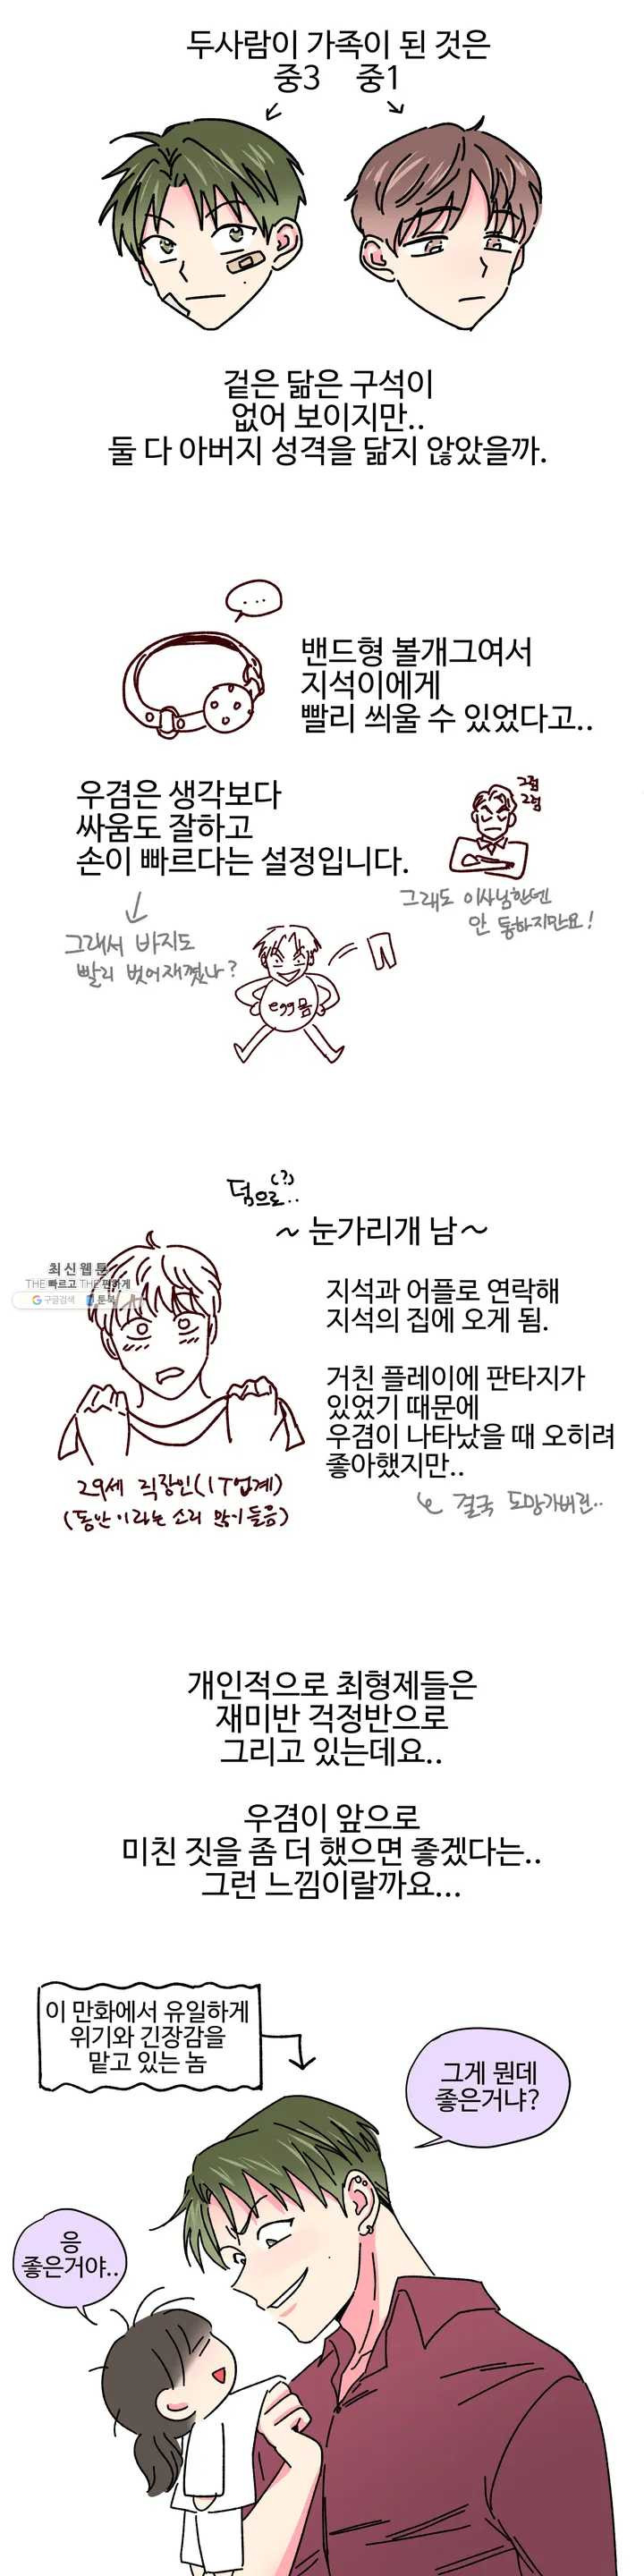 두사람이 가족이 된 것은
중3 중1
겉은 닮은 구석이
없어 보이지만..
둘 다 아버지 성격을 닮지 않았을까.
...
밴드형 볼개그여서
지석이에게
빨리 씌울 수 있었다고..
우겸은 생각보다
싸움도 잘하고
손이 빠르다는 설정입니다.
그럼
그럼
그래도 이사님한텐
안 통하지만요!
그래서 바지도
빨리 벗어재꼈나?
egg몸
덤으로(?)..
~ 눈가리개 남~
최신웹툰
THE빠르고 THE편하게
구글검색 툰북
지석과 어플로 연락해
지석의 집에 오게 됨.
거친 플레이에 판타지가
있었기 때문에
우겸이 나타났을 때 오히려
좋아했지만..
결국 도망가버린..
29세 직장인(IT업계)
(동안이라는 소리 많이 들음)
개인적으로 최형제들은
재미반 걱정반으로
그리고 있는데요..
우겸이 앞으로
미친 짓을 좀 더 했으면 좋겠다는..
그런 느낌이랄까요...
이 만화에서 유일하게
위기와 긴장감을
맡고 있는 놈
그게 뭔데
좋은거냐?
응
좋은거야..